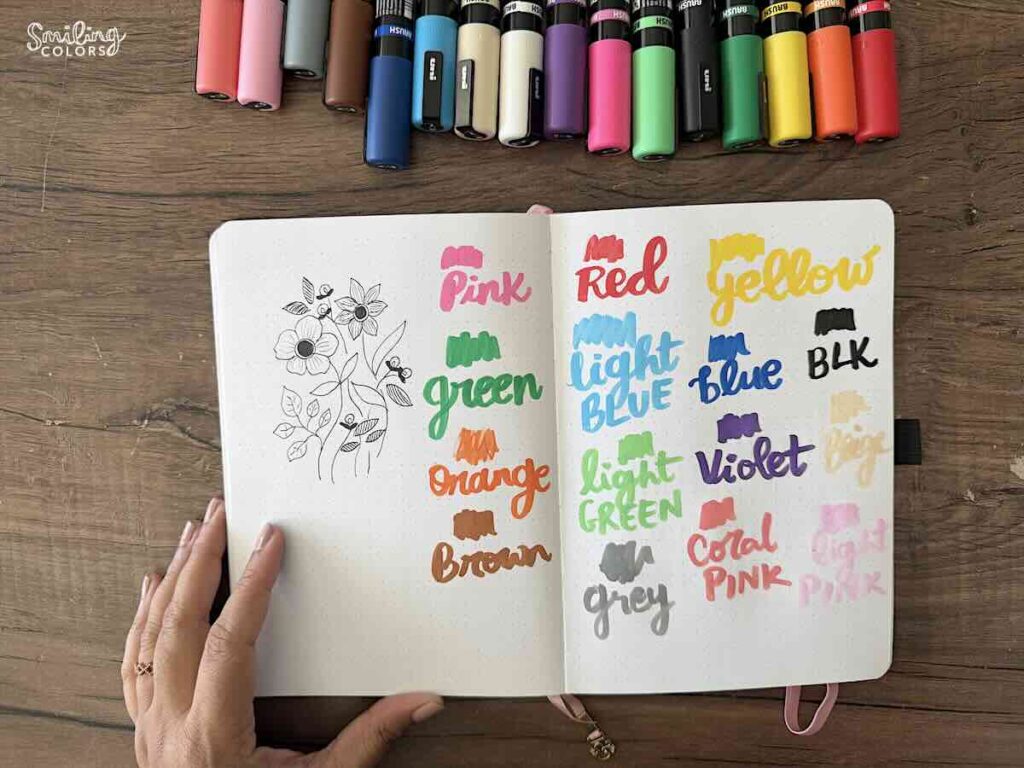 Smiling
COLORS
BRUSH
BRUSH
BRUSH
BRUSH
BRUSH
BRUSH
BRUSH
BRUSH
uni
uni
uni
uni
Pink
green
Orange
Brown
Red
yellow
light
BLUE
blue
BLK
light
GREEN
Violet
Beige
grey
Coral
PINK
light
PINK